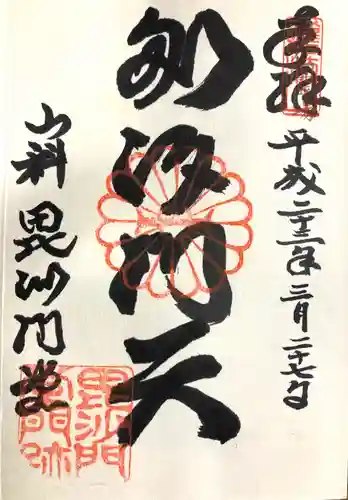 奉拝
平成二十三年三月二十七日
毘沙門天
山科
毘沙門堂
毘沙門
堂門跡